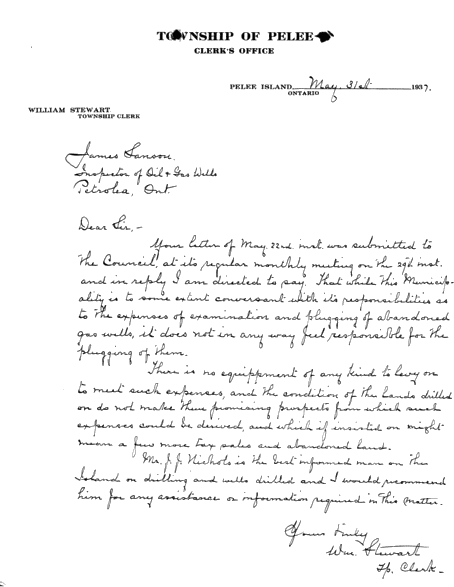 TOWNSHIP OF PELEE
CLERK'S OFFICE
PELEE ISLAND, May. 31st 1937.
ONTARIO
WILLIAM STEWART
TOWNSHIP CLERK
James Sanson.
Inspector of Oil & Gas Wells
Petrolea, Ont.
Dear Sir,-
Your letter of May. 22nd inst. was submitted to
the Council, at its regular monthly meeting on the 29th inst.
and in reply I am directed to say. That while this Municip-
ality is to some extent conversant with its responsibilities as
to the expenses of examination and plugging of abandoned
gas wells, it does not in any way feel responsible for the
plugging of them.
There is no equippment of any kind to levy on
to meet such expenses, and the condition of the lands drilled
on do not make them promising prospects from which such
expenses could be derived, and which if insisted on might
mean a few more tax sales and abandoned land.
Mr. J. J. Nichols is the best informed man on the
Island on drilling and wells drilled and I would recommend
him for any assistance or information required in this matter.
Yours truly
Wm. Stewart
Tp. Clerk-